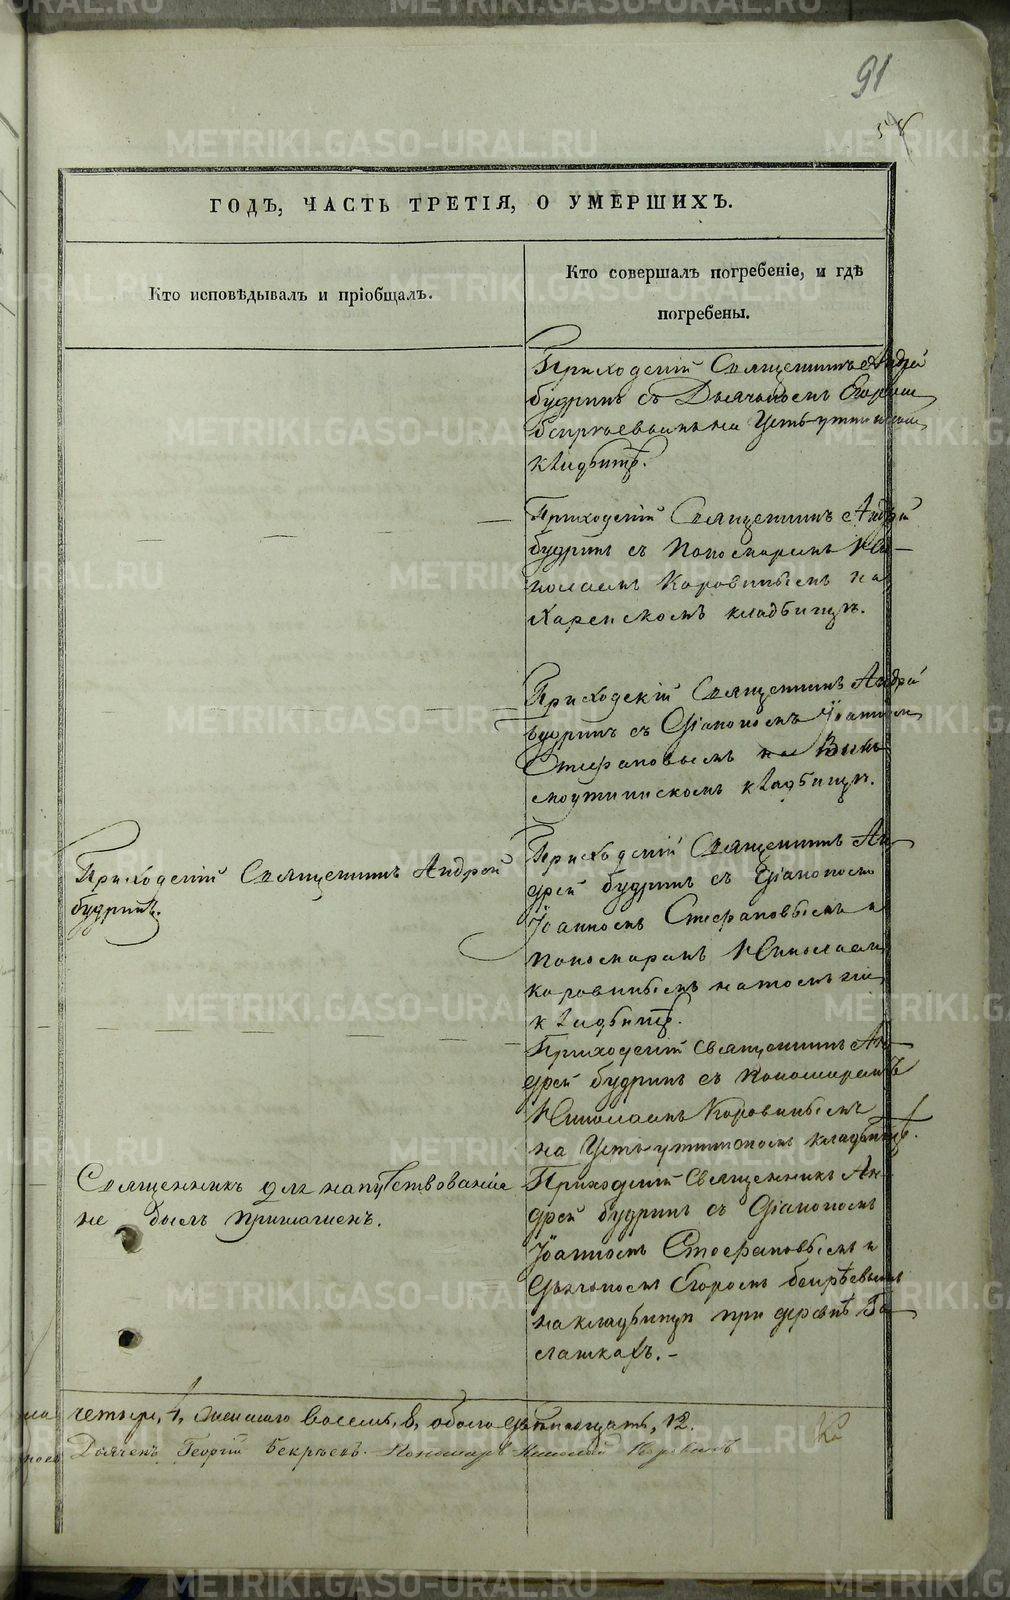 91
58
ГОДЪ, ЧАСТЬ ТРЕТІЯ, О УМЕРШИХЪ.
Кто исповѣдывалъ и пріобщалъ.
Кто совершалъ погребеніе, и гдѣ
погребены.
Приходскій Священникъ Андрей
Будринъ съ Дьячкомъ
на Усть-утинскомъ
кладбищѣ.
Приходскій Священникъ Андрей
Будринъ съ Пономаремъ Ни-
колаемъ Коровинымъ на
кладбищѣ.
Приходскій Священникъ Андрей
Будринъ съ Діакономъ Іоанномъ
Стефановымъ на
кладбищѣ.
Приходскій Священникъ Андрей
Будринъ.
Приходскій Священникъ Ан-
дрей Будринъ съ Діакономъ
Іоанномъ Стефановымъ и
пономаремъ Николаемъ
Коровинымъ на томъ же
кладбищѣ.
Приходскій Священникъ Ан-
дрей Будринъ съ Пономаремъ
Николаемъ Коровинымъ
на Усть-утинскомъ кладбищѣ.
Священникъ для напутствованія
не былъ приглашенъ.
Приходскій Священникъ Ан-
дрей Будринъ съ Діакономъ
Іоанномъ Стефановымъ и
Дьячкомъ Егоромъ
на кладбищѣ при деревнѣ Га-
лашкахъ.-
четыре, 4, женскаго восемь, 8, обоего двѣнадцать, 12.
12
Дьячекъ Георгій Пономарь Николай Коровинъ
METRIKI.GASO-URAL.RU